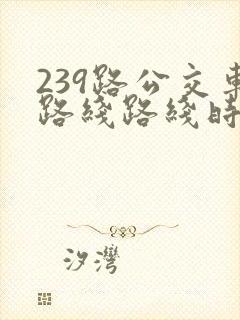 239路公交車
路綫路綫時
汐灣